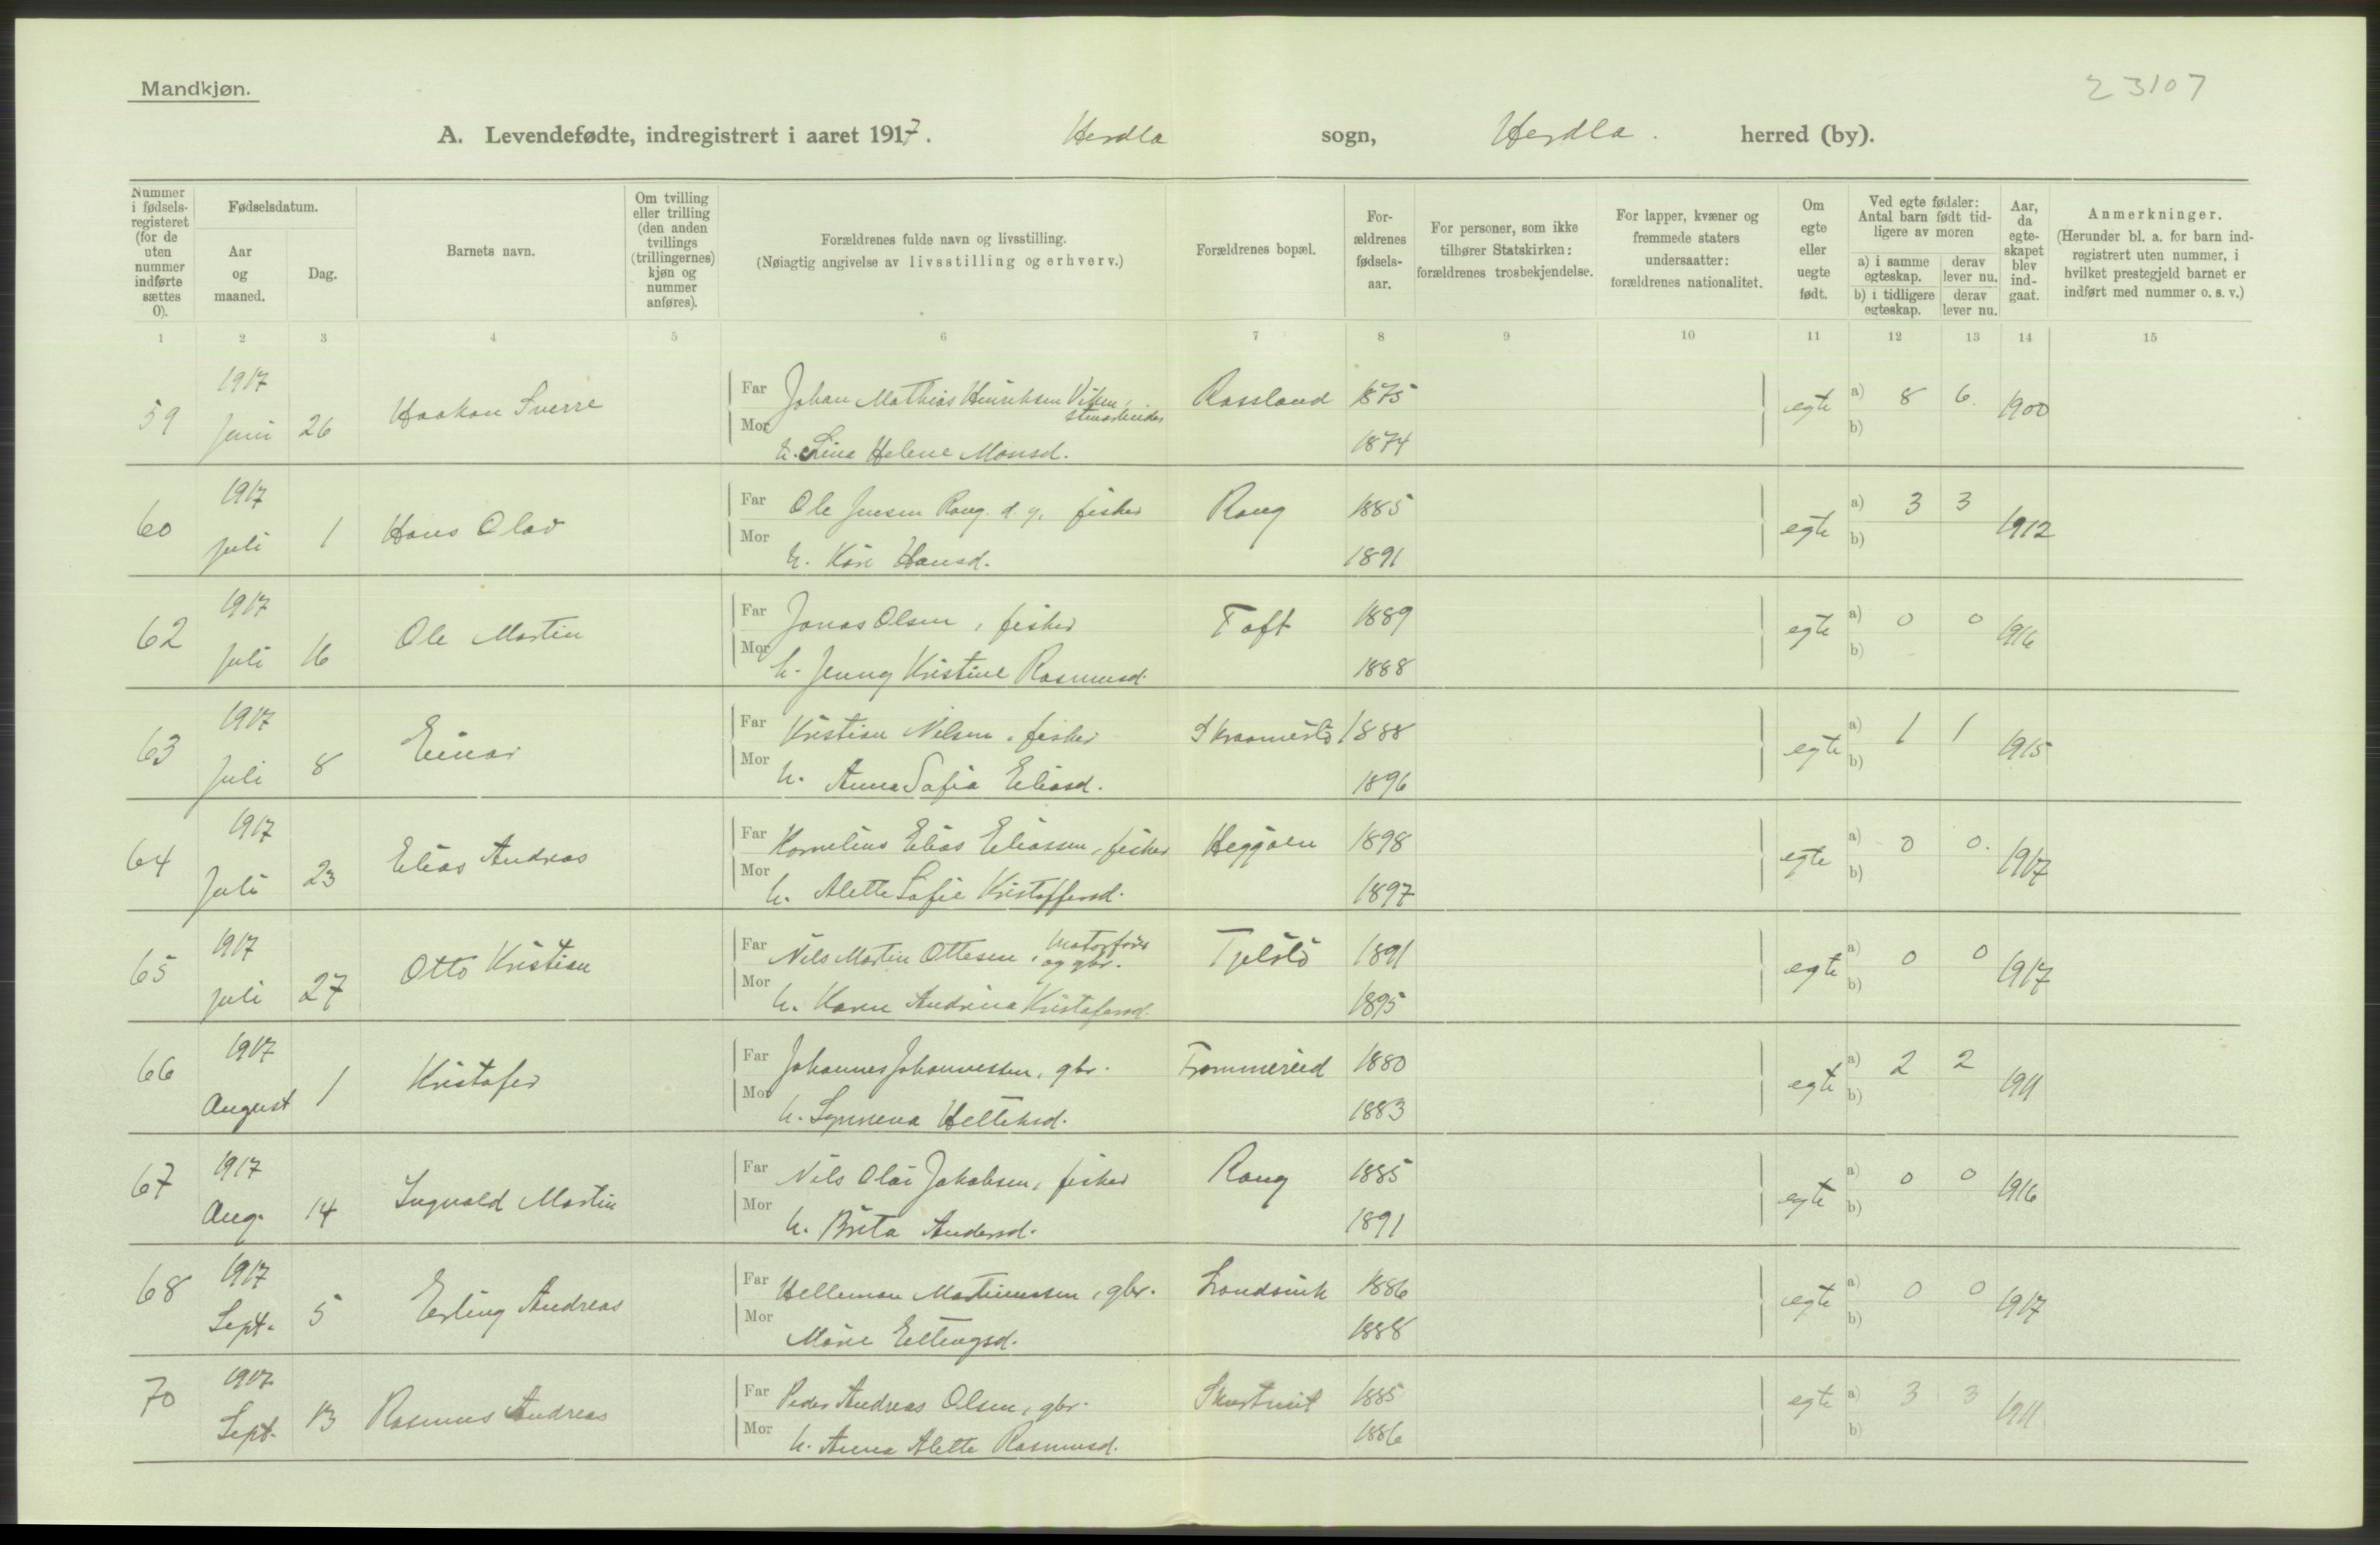 Mandkjøn.
23107
A. Levendefødte, indregistrert i aaret 1917. Herdla sogn, Herdla. herred (by).
Nummer i fødselsregisteret (for de uten nummer indførte sættes 0).
Fødselsdatum.
Aar og maaned.
Dag.
Barnets navn.
Om tvilling eller trilling (den anden tvillings (trillingernes) kjøn og nummer anføres).
Forældrenes fulde navn og livsstilling.
(Nøiagtig angivelse av livsstilling og erhverv.)
Forældrenes bopæl.
Forældrenes fødselsaar.
For personer, som ikke tilhører Statskirken: forældrenes trosbekjendelse.
For lapper, kvæner og fremmede staters undersaatter: forældrenes nationalitet.
Om egte eller uegte født.
Ved egte fødsler: Antal barn født tidligere av moren
a) i samme egteskap. derav lever nu.
b) i tidligere egteskap. derav lever nu.
Aar, da egteskapet blev indgaat.
Anmerkninger.
(Herunder bl. a. for barn indregistrert uten nummer, i hvilket prestegjeld barnet er indført med nummer o. s. v.)
1 2 3 4 5 6 7 8 9 10 11 12 13 14 15
59 1917 Juni 26 Haakon Sverre Far Johan Mathias Henriksen Viken, stenarbeider Rossland 1875 egte a) 8 6. 1900
Mor h. Lina Helene Monsd. 1874 b)
60 1917 Juli 1 Hans Olav Far Ole Jensen Rong d. y. fisker Rong 1885 egte a) 3 3 1912
Mor h. Kari Hansd. 1891 b)
62 1917 Juli 16 Ole Martin Far Jonas Olsen, fisker Toft 1889 egte a) 0 0 1916
Mor h. Jenny Kristine Rasmusd. 1888 b)
63 1917 Juli 8 Einar Far Kristian Nilsen, fisker 1888 egte a) 1 1 1915
Mor h. Anna Sofia Eliasd. 1896 b)
64 1917 Juli 23 Elias Andreas Far Kornelius Elias Eliassen, fisker Heggöen 1898 egte a) 0 0. 1917
Mor h. Alette Sofie Kristoffersd. 1897 b)
65 1917 Juli 27 Otto Kristian Far Nils Martin Ottesen, motorfører og gbr. Tjeldstö 1891 egte a) 0 0 1917
Mor h. Karen Andrina Kristofersd. 1895 b)
66 1917 August 1 Kristofer Far Johannes Johannessen, gbr. Frommereid 1880 egte a) 2 2 1911
Mor h. Synneva Helleksd. 1883 b)
67 1917 Aug. 14 Ingvald Martin Far Nils Olai Jakobsen, fisker Rong 1885 egte a) 0 0 1916
Mor h. Brita Andersd. 1891 b)
68 1917 Sept. 5 Erling Andreas Far Helleman Martinussen, gbr. Landsvik 1886 egte a) 0 0 1917
Mor Marie Ellingsd. 1888 b)
70 1917 Sept. 13 Rasmus Andreas Far Peder Andreas Olsen, gbr. 1885 egte a) 3 3 1911
Mor h. Anna Alette Rasmusd. 1886 b)